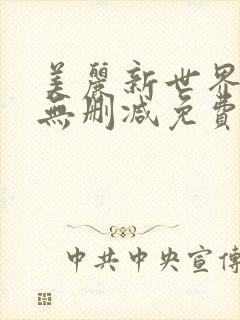 美麗新世界
無刪減免費
中共中央宣傳